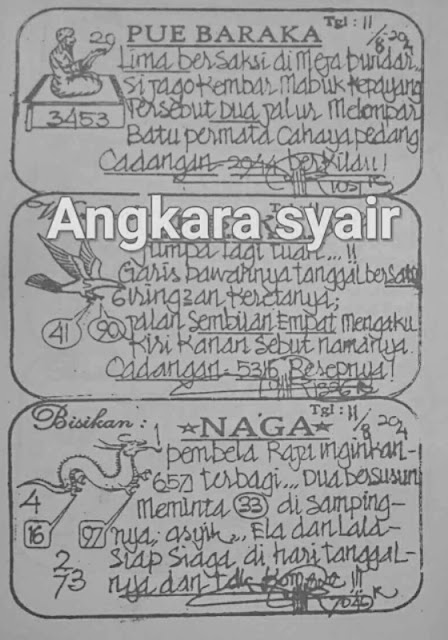 20
3453
PUE BARAKA
Tgl: 11/8-204
Lima bersaksi di Meja bundar..
Si jago kembar Mabuk kepayang
Persebut Dua jalur Melompat
Batu permata cahaya pedang
Cadangan-2944 berkilau!
Angkara syair
Jumpa lagi tuan...!!
Garis bawahnya tanggal bersatu
Giringan keretanya;
jalan Sembilan Empat Mengaku
Kiri Kanan Sebut namanya.
Cadangan-5316 Resepnya!
41
90
Bisikan:
Tgl: 11/8-204
☆NAGA☆
pembela Raja inginkan-
657 terbagi... Dua bersusun
Meminta 33 di Samping-
nya; asyik... Ela dan Lala-
Siap Siaga di hari tanggal-
nya dan
4
16
97
2
73